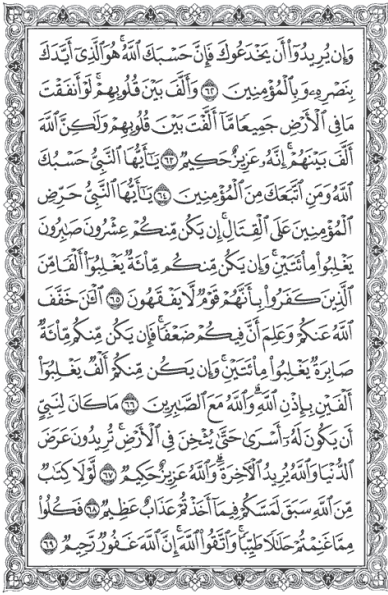 وَإِن يُرِيدُوٓا۟ أَن يَخْدَعُوكَ فَإِنَّ حَسْبَكَ ٱللَّهُ ۚ هُوَ ٱلَّذِىٓ أَيَّدَكَ
بِنَصْرِهِۦ وَبِٱلْمُؤْمِنِينَ ٦٢ وَأَلَّفَ بَيْنَ قُلُوبِهِمْ ۚ لَوْ أَنفَقْتَ
مَا فِى ٱلْأَرْضِ جَمِيعًا مَّآ أَلَّفْتَ بَيْنَ قُلُوبِهِمْ وَلَـٰكِنَّ ٱللَّهَ
أَلَّفَ بَيْنَهُمْ ۚ إِنَّهُۥ عَزِيزٌ حَكِيمٌ ٦٣ يَـٰٓأَيُّهَا ٱلنَّبِىُّ حَسْبُكَ
ٱللَّهُ وَمَنِ ٱتَّبَعَكَ مِنَ ٱلْمُؤْمِنِينَ ٦٤ يَـٰٓأَيُّهَا ٱلنَّبِىُّ حَرِّضِ
ٱلْمُؤْمِنِينَ عَلَى ٱلْقِتَالِ ۚ إِن يَكُن مِّنكُمْ عِشْرُونَ صَـٰبِرُونَ
يَغْلِبُوا۟ مِا۟ئَتَيْنِ ۚ وَإِن يَكُن مِّنكُم مِّا۟ئَةٌ يَغْلِبُوٓا۟ أَلْفًا مِّنَ
ٱلَّذِينَ كَفَرُوا۟ بِأَنَّهُمْ قَوْمٌ لَّا يَفْقَهُونَ ٦٥ ٱلْـَٔـٰنَ خَفَّفَ
ٱللَّهُ عَنكُمْ وَعَلِمَ أَنَّ فِيكُمْ ضَعْفًا ۚ فَإِن يَكُن مِّنكُم مِّا۟ئَةٌ
صَابِرَةٌ يَغْلِبُوا۟ مِا۟ئَتَيْنِ ۚ وَإِن يَكُن مِّنكُمْ أَلْفٌ يَغْلِبُوٓا۟
أَلْفَيْنِ بِإِذْنِ ٱللَّهِ ۗ وَٱللَّهُ مَعَ ٱلصَّـٰبِرِينَ ٦٦ مَا كَانَ لِنَبِىٍّ
أَن يَكُونَ لَهُۥٓ أَسْرَىٰ حَتَّىٰ يُثْخِنَ فِى ٱلْأَرْضِ ۚ تُرِيدُونَ عَرَضَ
ٱلدُّنْيَا وَٱللَّهُ يُرِيدُ ٱلْـَٔاخِرَةَ ۗ وَٱللَّهُ عَزِيزٌ حَكِيمٌ ٦٧ لَّوْلَا كِتَـٰبٌ
مِّنَ ٱللَّهِ سَبَقَ لَمَسَّكُمْ فِيمَآ أَخَذْتُمْ عَذَابٌ عَظِيمٌ ٦٨ فَكُلُوا۟
مِمَّا غَنِمْتُمْ حَلَـٰلًا طَيِّبًا ۚ وَٱتَّقُوا۟ ٱللَّهَ ۚ إِنَّ ٱللَّهَ غَفُورٌ رَّحِيمٌ ٦٩